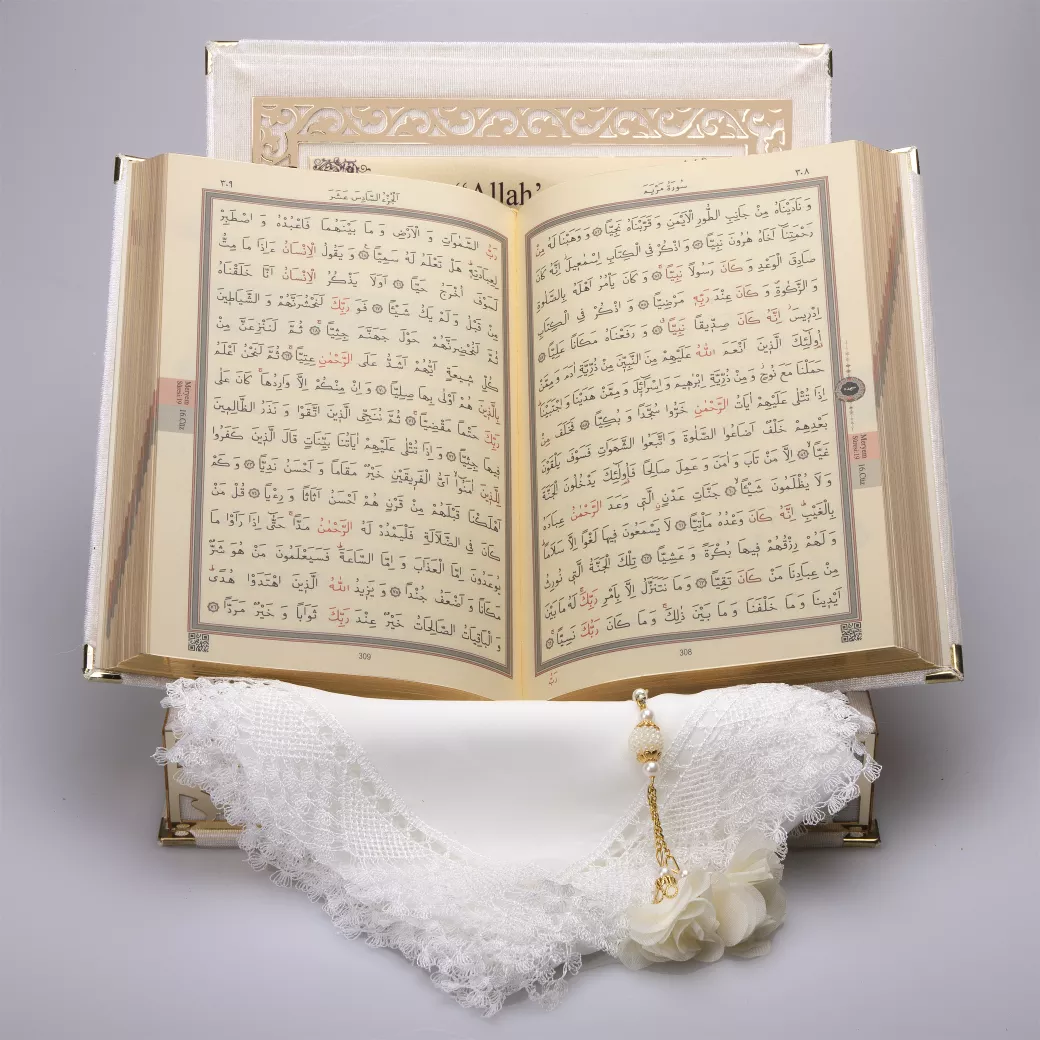 “Allah’
٣٠٨
سُورَةُ مَرْيَمَ
وَ نَادَيْنَاهُ مِنْ جَانِبِ الطُّورِ الْاَيْمَنِ وَ قَرَّبْنَاهُ نَجِيًّا ۞ وَ وَهَبْنَا لَهُ مِنْ
رَحْمَتِنَا اَخَاهُ هٰرُونَ نَبِيًّا ۞ وَ اذْكُرْ فِي الْكِتَابِ اِسْمٰعِيلَ اِنَّهُ كَانَ
صَادِقَ الْوَعْدِ وَ كَانَ رَسُولًا نَبِيًّا ۞ وَ كَانَ يَأْمُرُ اَهْلَهُ بِالصَّلٰوةِ
وَ الزَّكٰوةِ وَ كَانَ عِنْدَ رَبِّهِ مَرْضِيًّا ۞ وَ اذْكُرْ فِي الْكِتَابِ
اِدْرِيسَ اِنَّهُ كَانَ صِدِّيقًا نَبِيًّا ۞ وَ رَفَعْنَاهُ مَكَانًا عَلِيًّا ۞
اُولٰئِكَ الَّذِينَ اَنْعَمَ اللّٰهُ عَلَيْهِمْ مِنَ النَّبِيِّنَ مِنْ ذُرِّيَّةِ اٰدَمَ وَ مِمَّنْ
حَمَلْنَا مَعَ نُوحٍ وَ مِنْ ذُرِّيَّةِ اِبْرٰهِيمَ وَ اِسْرَائِلَ وَ مِمَّنْ هَدَيْنَا وَ اجْتَبَيْنَا
اِذَا تُتْلٰى عَلَيْهِمْ اٰيَاتُ الرَّحْمٰنِ خَرُّوا سُجَّدًا وَ بُكِيًّا ۞ فَخَلَفَ مِنْ
بَعْدِهِمْ خَلْفٌ اَضَاعُوا الصَّلٰوةَ وَ اتَّبَعُوا الشَّهَوَاتِ فَسَوْفَ يَلْقَوْنَ
غَيًّا ۞ اِلَّا مَنْ تَابَ وَ اٰمَنَ وَ عَمِلَ صَالِحًا فَاُولٰئِكَ يَدْخُلُونَ الْجَنَّةَ
وَ لَا يُظْلَمُونَ شَيْئًا ۞ جَنَّاتِ عَدْنٍ الَّتِي وَعَدَ الرَّحْمٰنُ عِبَادَهُ
بِالْغَيْبِ اِنَّهُ كَانَ وَعْدُهُ مَأْتِيًّا ۞ لَا يَسْمَعُونَ فِيهَا لَغْوًا اِلَّا سَلَامًا
وَ لَهُمْ رِزْقُهُمْ فِيهَا بُكْرَةً وَ عَشِيًّا ۞ تِلْكَ الْجَنَّةُ الَّتِي نُورِثُ
مِنْ عِبَادِنَا مَنْ كَانَ تَقِيًّا ۞ وَ مَا نَتَنَزَّلُ اِلَّا بِاَمْرِ رَبِّكَ لَهُ مَا بَيْنَ
اَيْدِينَا وَ مَا خَلْفَنَا وَ مَا بَيْنَ ذٰلِكَ وَ مَا كَانَ رَبُّكَ نَسِيًّا ۞
رَبُّ
308
Meryem
Sûresi:19
16.Cüz
٣٠٩
اَلْجُزْءُ السَّادِسَ عَشَرَ
رَبُّ السَّمٰوَاتِ وَ الْاَرْضِ وَ مَا بَيْنَهُمَا فَاعْبُدْهُ وَ اصْطَبِرْ
لِعِبَادَتِهِ هَلْ تَعْلَمُ لَهُ سَمِيًّا ۞ وَ يَقُولُ الْاِنْسَانُ ءَاِذَا مَا مِتُّ
لَسَوْفَ اُخْرَجُ حَيًّا ۞ اَوَلَا يَذْكُرُ الْاِنْسَانُ اَنَّا خَلَقْنَاهُ
مِنْ قَبْلُ وَ لَمْ يَكُ شَيْئًا ۞ فَوَ رَبِّكَ لَنَحْشُرَنَّهُمْ وَ الشَّيَاطِينَ
ثُمَّ لَنُحْضِرَنَّهُمْ حَوْلَ جَهَنَّمَ جِثِيًّا ۞ ثُمَّ لَنَنْزِعَنَّ مِنْ
كُلِّ شِيعَةٍ اَيُّهُمْ اَشَدُّ عَلَى الرَّحْمٰنِ عِتِيًّا ۞ ثُمَّ لَنَحْنُ اَعْلَمُ
بِالَّذِينَ هُمْ اَوْلٰى بِهَا صِلِيًّا ۞ وَ اِنْ مِنْكُمْ اِلَّا وَارِدُهَا كَانَ عَلٰى
رَبِّكَ حَتْمًا مَقْضِيًّا ۞ ثُمَّ نُنَجِّي الَّذِينَ اتَّقَوْا وَ نَذَرُ الظَّالِمِينَ
فِيهَا جِثِيًّا ۞ وَ اِذَا تُتْلٰى عَلَيْهِمْ اٰيَاتُنَا بَيِّنَاتٍ قَالَ الَّذِينَ كَفَرُوا
لِلَّذِينَ اٰمَنُوا اَيُّ الْفَرِيقَيْنِ خَيْرٌ مَقَامًا وَ اَحْسَنُ نَدِيًّا ۞ وَ كَمْ
اَهْلَكْنَا قَبْلَهُمْ مِنْ قَرْنٍ هُمْ اَحْسَنُ اَثَاثًا وَ رِءْيًا ۞ قُلْ مَنْ
كَانَ فِي الضَّلَالَةِ فَلْيَمْدُدْ لَهُ الرَّحْمٰنُ مَدًّا حَتّٰى اِذَا رَاَوْا مَا
يُوعَدُونَ اِمَّا الْعَذَابَ وَ اِمَّا السَّاعَةَ فَسَيَعْلَمُونَ مَنْ هُوَ شَرٌّ
مَكَانًا وَ اَضْعَفُ جُنْدًا ۞ وَ يَزِيدُ اللّٰهُ الَّذِينَ اهْتَدَوْا هُدًى
وَ الْبَاقِيَاتُ الصَّالِحَاتُ خَيْرٌ عِنْدَ رَبِّكَ ثَوَابًا وَ خَيْرٌ مَرَدًّا ۞
309
Meryem
Sûresi:19
16.Cüz